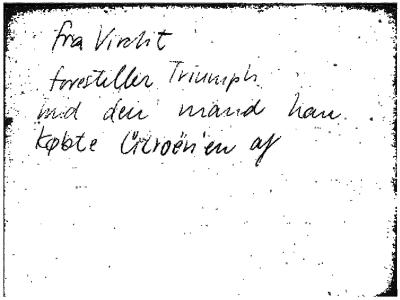 fra Viraht
forestiller Triumph
med den mand han
købte Citroën'en af